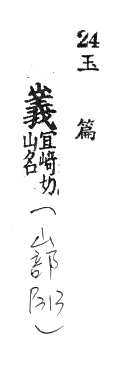 24 玉篇
嶬 宜﨑切
山名
(山部
P313)